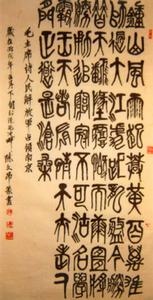 鍾山風雨起蒼黃百萬雄
師過大江虎踞龍盤今勝
昔天翻地覆慨而慷宜將
剩勇追窮寇不可沽名學
霸王天若有情天亦老人
間正道是滄桑
毛主席詩人民解放軍占領南京